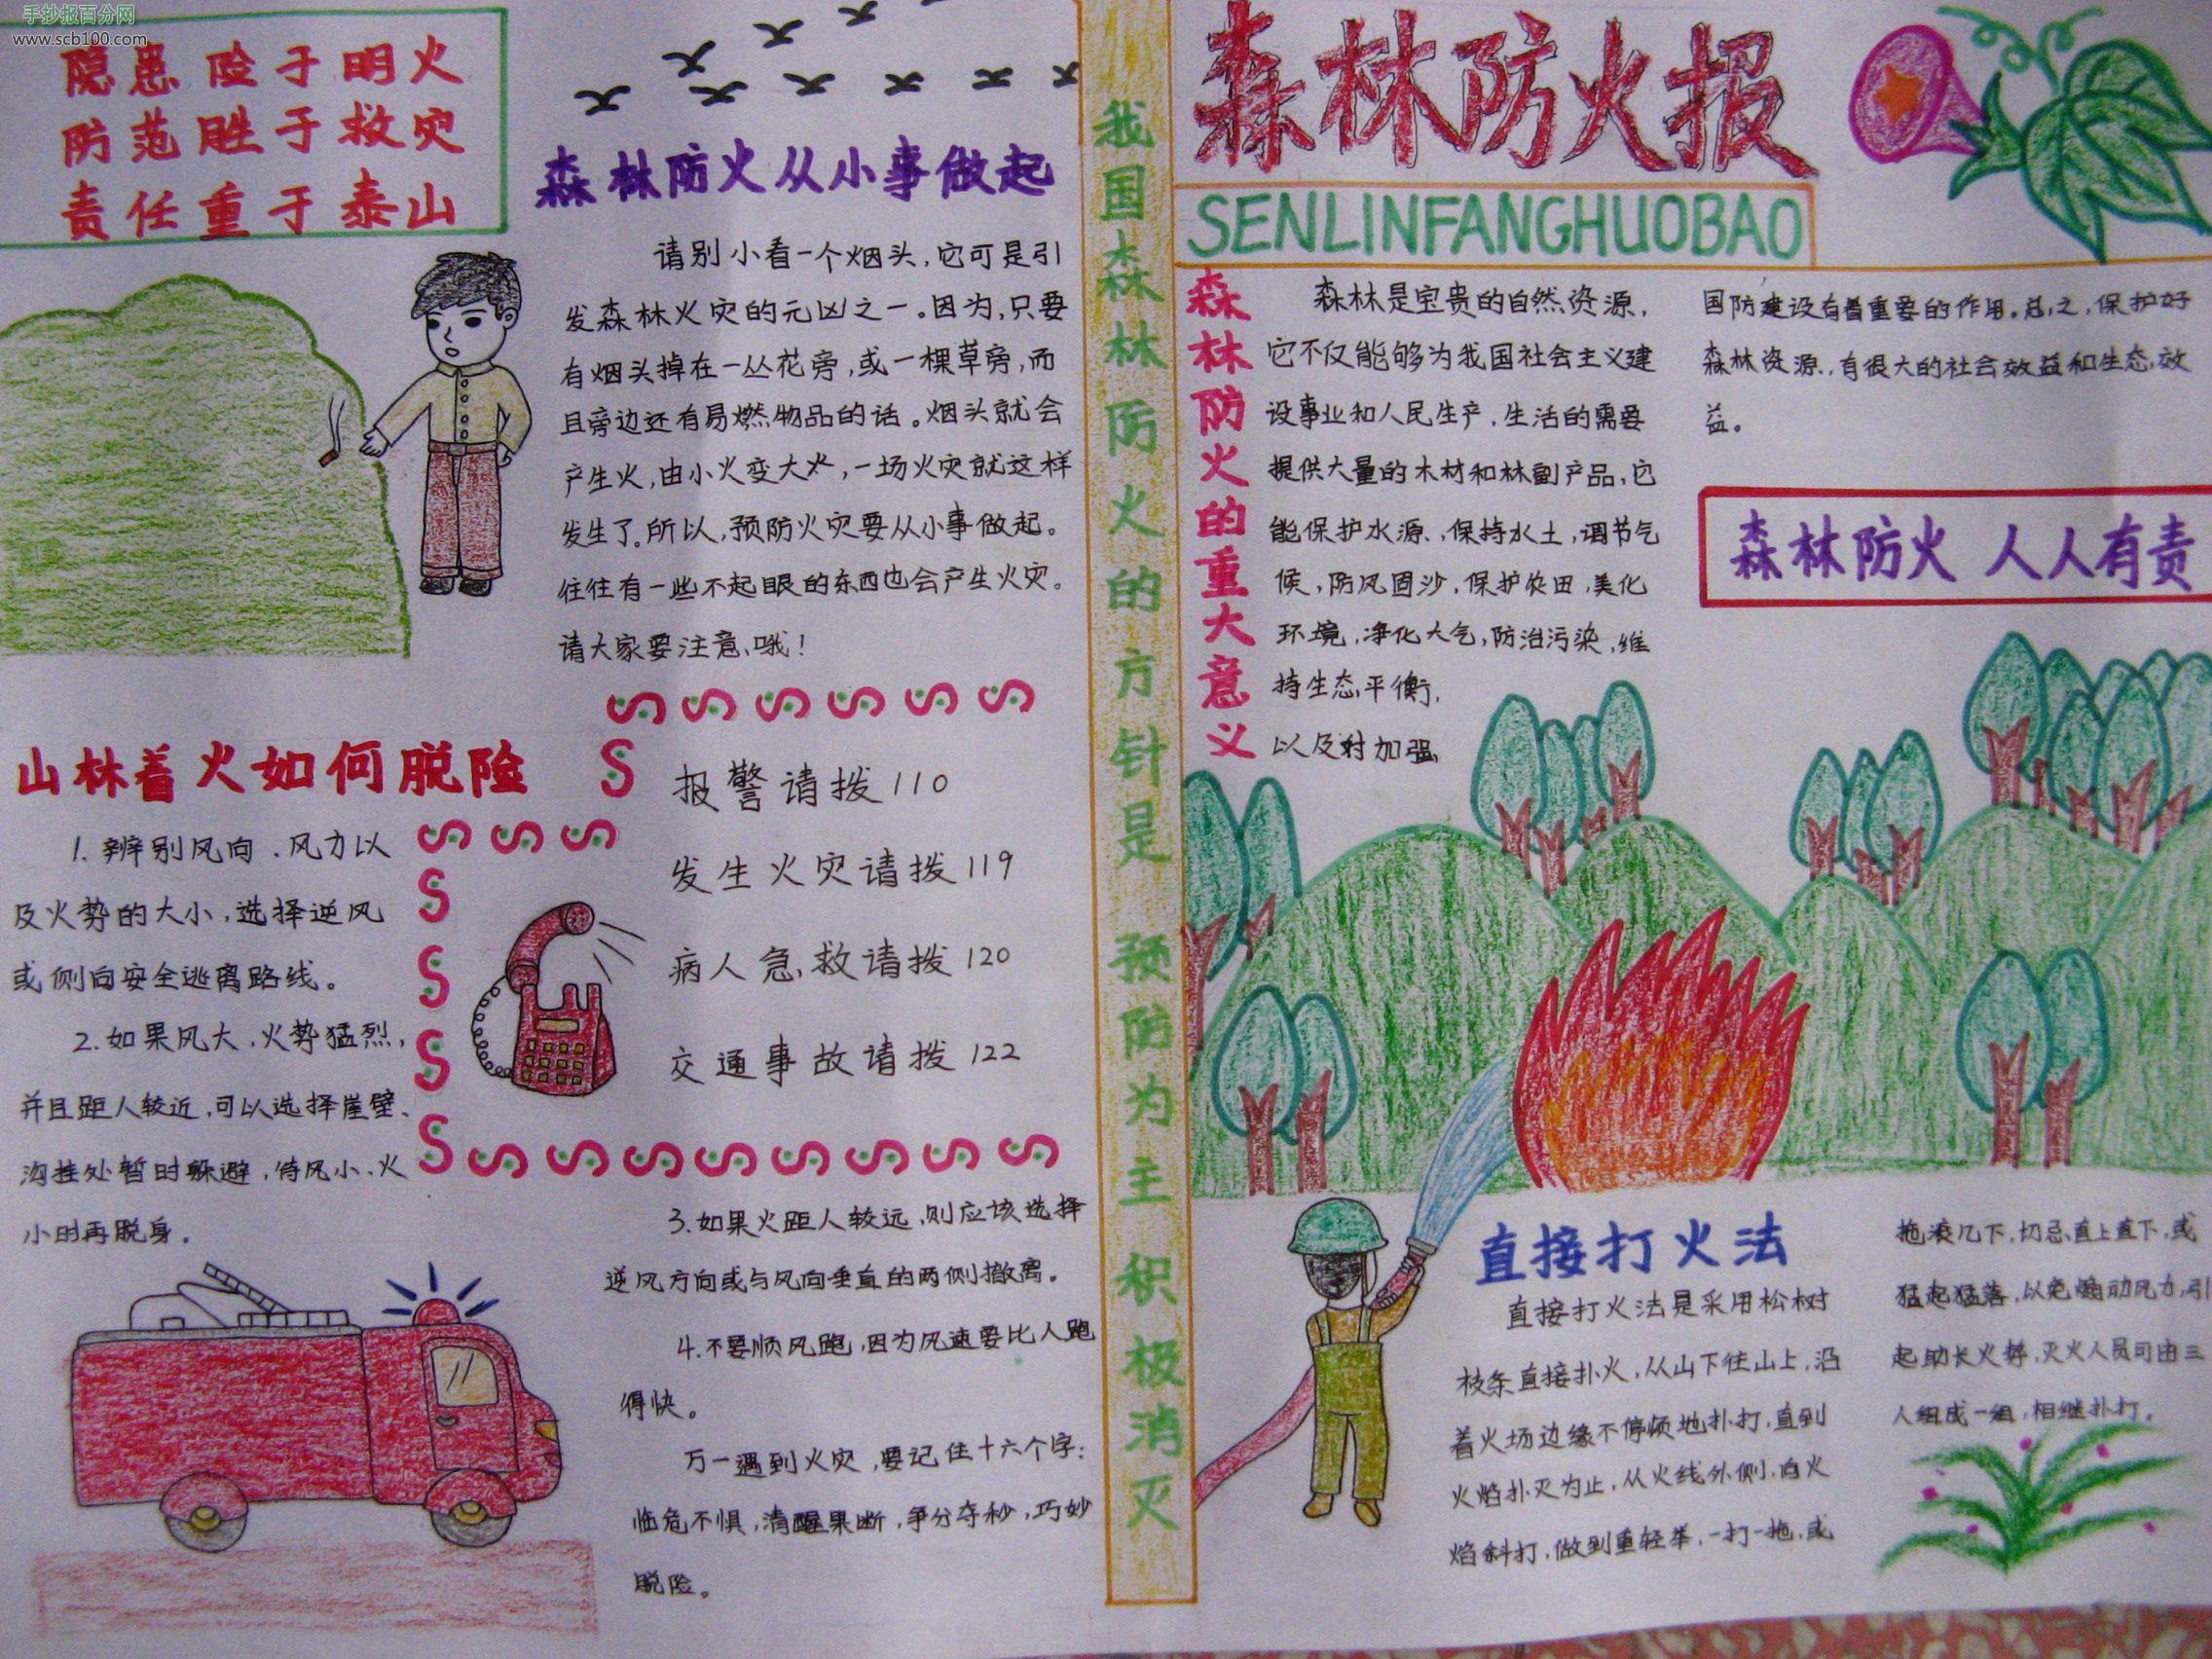 手抄报百分网
www.scb100.com
隐患险于明火
防范胜于救灾
责任重于泰山
森林防火从小事做起
请别小看一个烟头,它可是引
发森林火灾的元凶之一。因为,只要
有烟头掉在一丛花旁,或一棵草旁,而
且旁边还有易燃物品的话。烟头就会
产生火,由小火变大火,一场火灾就这样
发生了。所以,预防火灾要从小事做起。
往往有一些不起眼的东西也会产生火灾。
请大家要注意哦!
山林着火如何脱险
1.辨别风向、风力以
及火势的大小,选择逆风
或侧向安全逃离路线。
2.如果风大,火势猛烈,
并且距人较近,可以选择崖壁、
沟洼处暂时躲避,待风小、火
小时再脱身。
报警请拨110
发生火灾请拨119
病人急救请拨120
交通事故请拨122
3.如果火距人较远,则应该选择
逆风方向或与风向垂直的两侧撤离。
4.不要顺风跑,因为风速要比人跑
得快。
万一遇到火灾,要记住十六个字:
临危不惧,清醒果断,争分夺秒,巧妙
脱险。
我国森林防火的方针是预防为主积极消灭
森林防火报
SENLINFANGHUOBAO
森林防火的重大意义
森林是宝贵的自然资源,
它不仅能够为我国社会主义建
设事业和人民生产,生活的需要
提供大量的木材和林副产品,它
能保护水源,保持水土,调节气
候,防风固沙,保护农田,美化
环境,净化大气,防治污染,维
持生态平衡,
以及对加强
国防建设有着重要的作用。总之,保护好
森林资源,有很大的社会效益和生态效
益。
森林防火 人人有责
直接打火法
直接打火法是采用松树
枝条直接扑火,从山下往山上,沿
着火场边缘不停顿地扑打,直到
火焰扑灭为止,从火线外侧,向火
焰斜打,做到重轻举,一打一拖,或
拖滚几下,切忌直上直下,或
猛起猛落,以免煽动风力,引
起助长火势,灭火人员可由三
人组成一组,相继扑打。